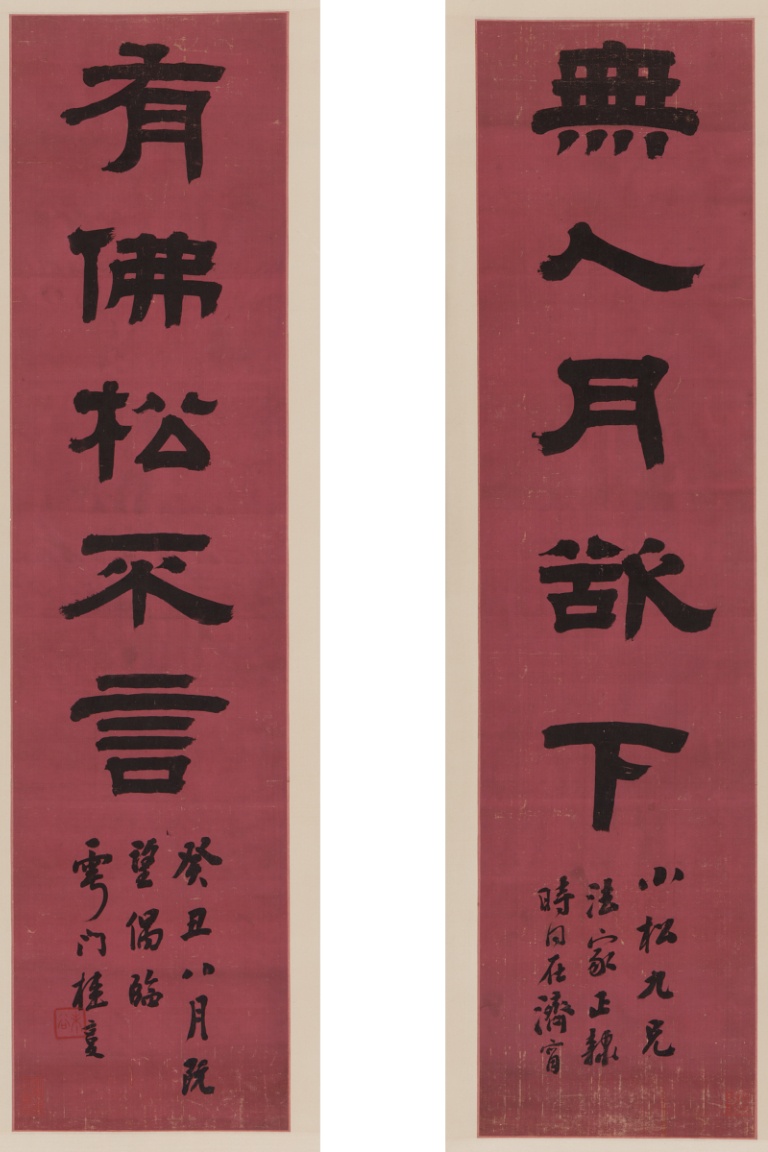 無人月欲下
小松九兄
法家正隸
時同在濟甯
有佛松不言
癸丑八月既
望偶臨
雩門桂